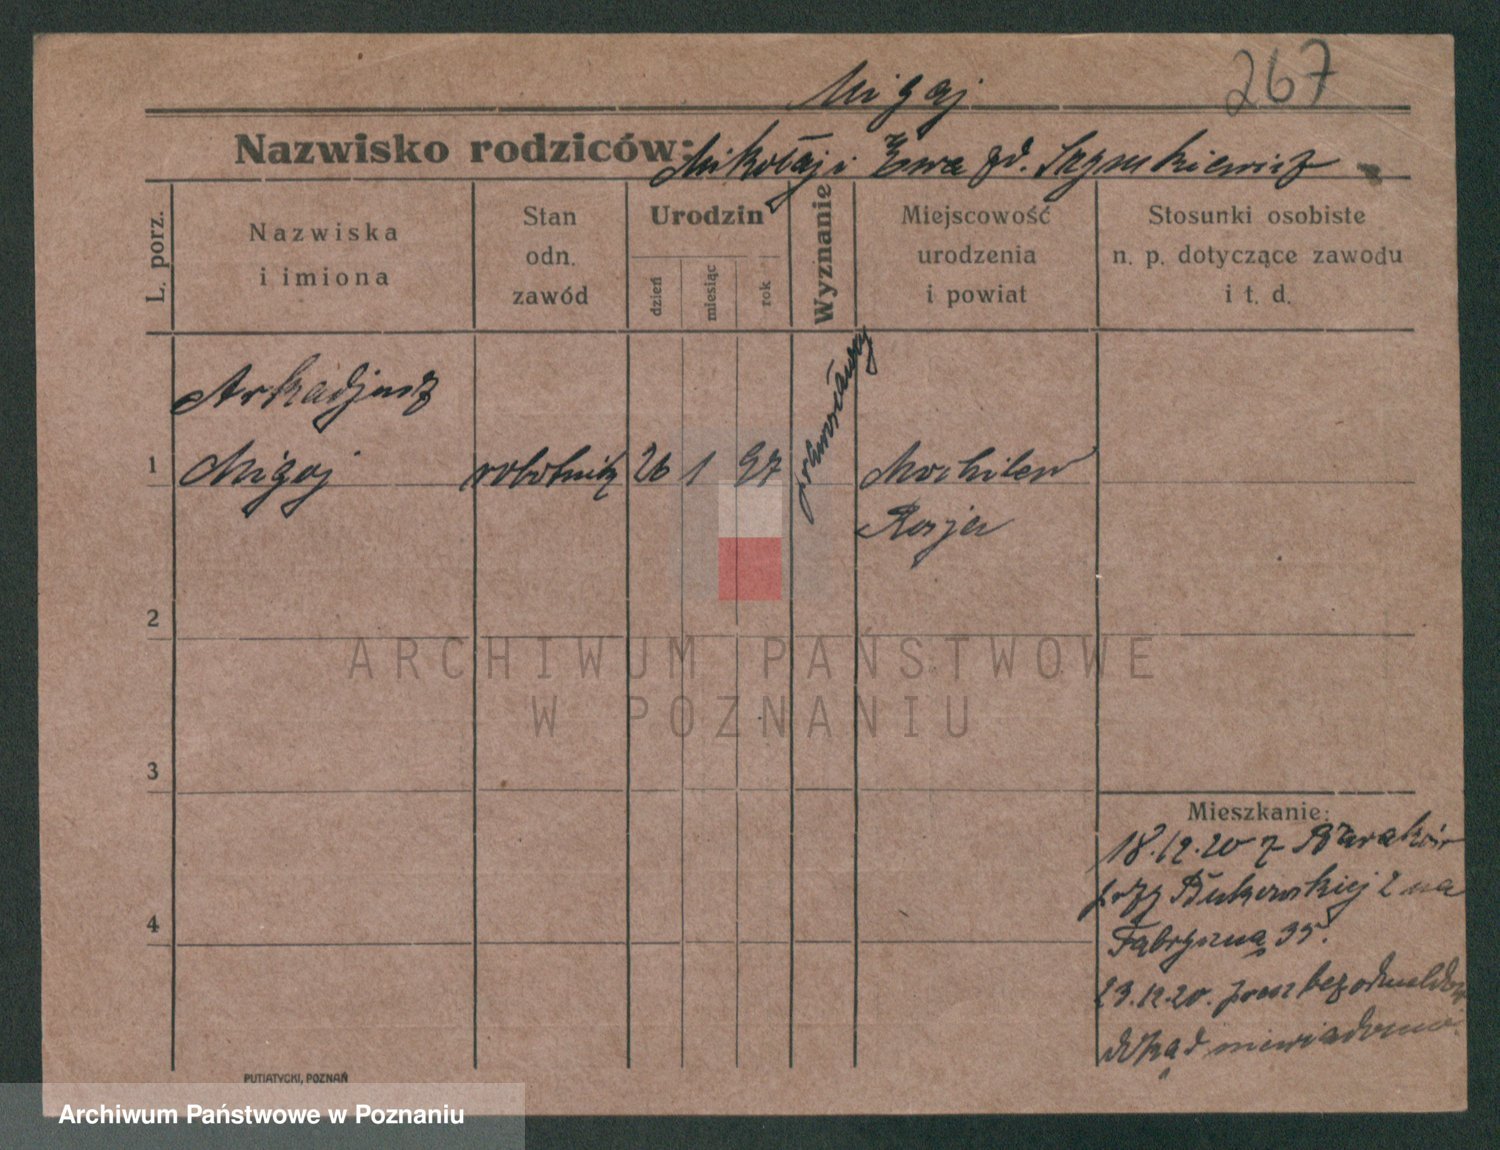 267
Migaj
Nazwisko rodziców: Mikołaj i Ewa zd. Szymkiewicz
L. porz.
Nazwiska
i imiona
Stan
odn.
zawód
Urodzin
dzień
miesiąc
rok
Wyznanie
Miejscowość
urodzenia
i powiat
Stosunki osobiste
n. p. dotyczące zawodu
i t. d.
Arkadjusz
1 Migaj robotnik 26 1 97 prawosławny Mochilew
Rosja
2
ARCHIWUM PAŃSTWOWE
W POZNANIU
3
Mieszkanie:
18.12.20 z Baraków
przy Bukowskiej 2 na
4
Fabryczną 35.
23.12.20. bez odmeldow
dokąd niewiadomo.
PUTIATYCKI, POZNAŃ
Archiwum Państwowe w Poznaniu